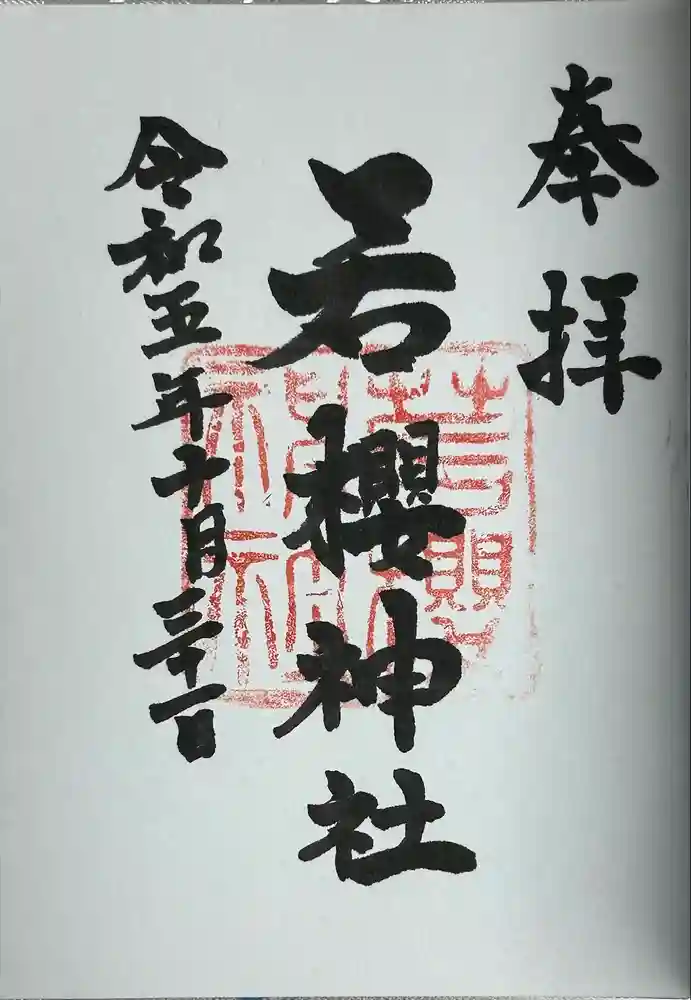 奉拝
若櫻神社
令和五年十月三十一日
若櫻神社